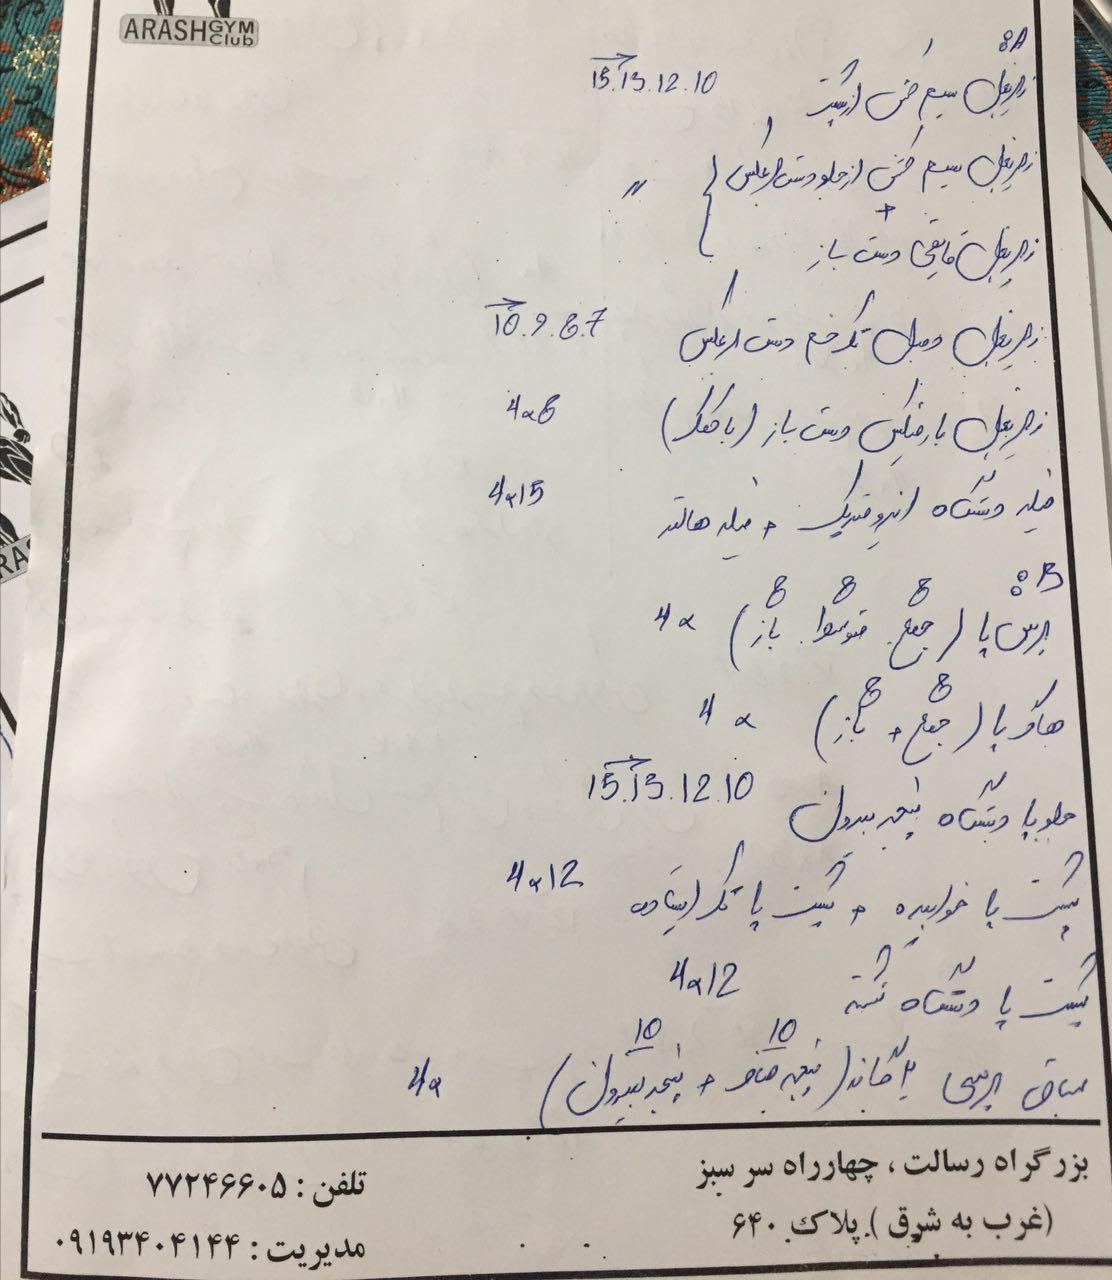 ARASH GYM Club
A:
زیربغل سیم کش از پشت 15.13.12.10
زیربغل سیم کش از جلو دست برعکس 〃
+
زیربغل قایقی دست باز
زیربغل دمبل تک خم دست برعکس 10.9.8.7
زیربغل بارفیکس دست باز (با کمک) 4×8
فیله دستگاه + فیله هالتر 4×15
B:
پرس پا (جمع 8 متوسط 8 باز 8) 4×
هاک پا (جمع 8 + باز 8) 4×
جلو پا دستگاه پنجه بیرون 15.13.12.10
پشت پا خوابیده + پشت پا تک ایستاده 4×12
پشت پا دستگاه نشسته 4×12
ساق پرسی 2گانه (پنجه صاف 10 + پنجه بیرون 10) 4×
بزرگراه رسالت ، چهارراه سر سبز
(غرب به شرق) پلاک ۶۴۰
تلفن : ۷۷۲۴۶۶۰۵
مدیریت : ۰۹۱۹۳۴۰۴۱۴۴